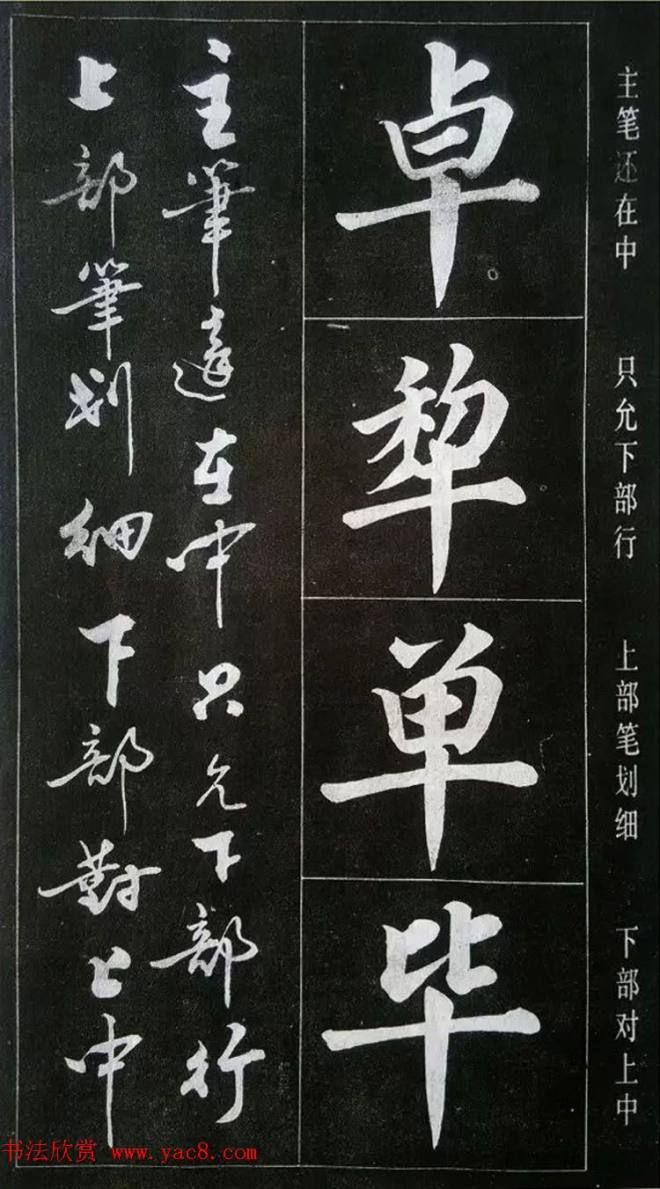 主笔还在中 只允下部行 上部笔划细 下部对上中
卓
犂
单
毕
主筆還在中只允下部行
上部筆划细下部對上中
书法欣赏 www.yac8.com